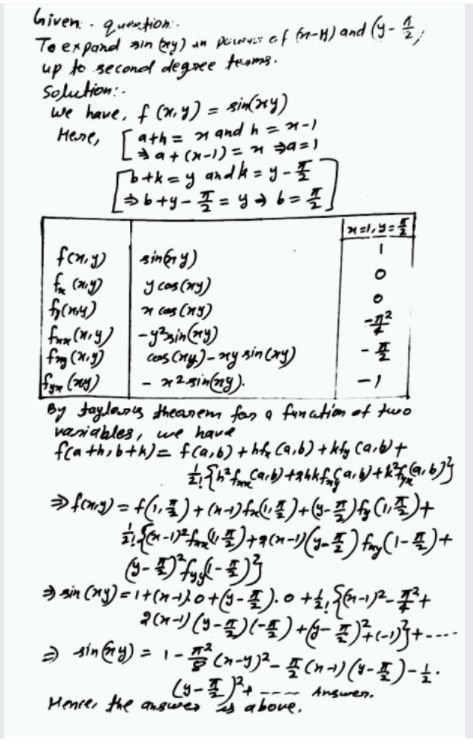 Given:- question:-
To expand sin (xy) in powers of (x-4) and (y-π/2)
up to second degree terms.
Solution:-
We have, f (x,y) = sin(xy)
Here, [a+h = x and h = x-1
⇒ a + (x-1) = x ⇒ a = 1
[b+k = y and k = y - π/2
⇒ b+y-π/2 = y ⇒ b = π/2]
x=1, y=π/2
f(x,y) sin(xy) 1
fx (x,y) y cos(xy) 0
fy(x,y) x cos (xy) 0
fxx (x,y) -y²sin(xy) -π²/4
fxy (x,y) cos (xy) - xy sin (xy) -π/2
fyx (xy) - x2 sin(xy). -1
By taylors theorem for a function of two
variables, we have
f(a+h, b+k) = f(a,b) + hfx (a,b) + kfy (a,b) +
1/2! {h²fxx (a,b) + 2hkfxy(a,b) + k²fyx(a,b)}
⇒ f(x,y) = f(1,π/2) + (x-1)fx(1,π/2) + (y-π/2)fy (1,π/2) +
1/2! {(x-1)²fxx(1,π/2) + 2(x-1)(y-π/2) fxy(1-π/2) +
(y-π/2)²fyy(1-π/2)}
⇒ sin (xy) = 1+(x-1).0+(y-π/2).0 + 1/2! {(x-1)²-π²/4 +
2(x-1) (y-π/2)(-π/2) + (y-π/2)²+(-1)} + ----
⇒ sin (xy) = 1 - π²/8 (x-y)² - π/2 (x-1) (y-π/2) - 1/2.
(y-π/2)² + ---- Answer.
Hence, the answer is above.